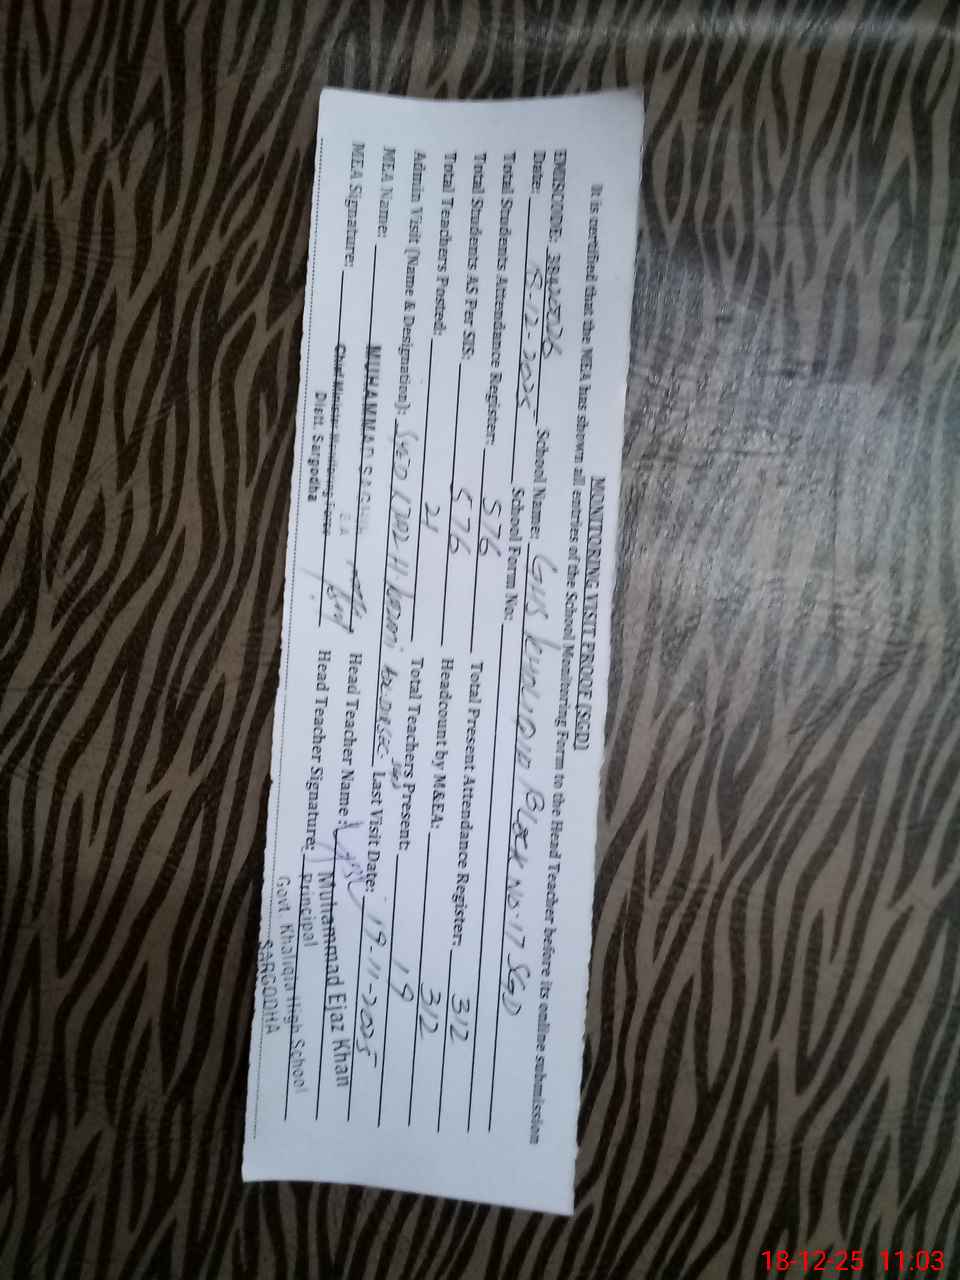 MONITORING VISIT PROOF [SGD]
It is certified that the MEA has shown all entries of the School Monitoring Form to the Head Teacher before its online submission
EMISCODE: School Name: GHS KHALIQIA BLOCK NO-17 SGD
Date: -12-2025 School Form No:
Total Students Attendance Register: 576 Total Present Attendance Register: 312
Total Students AS Per SIS: 576 Headcount by M&EA: 312
Total Teachers Posted: 21 Total Teachers Present: 19
Admin Visit (Name & Designation): SYED Last Visit Date: 19-11-2025
MEA Name: MUHAMMAD Head Teacher Name: Muhammad Ejaz Khan
MEA Signature: Chief Minister Monitoring Force Head Teacher Signature: Principal
Distt. Sargodha Govt. Khaliqia High School
SARGODHA
18-12-25 11:03